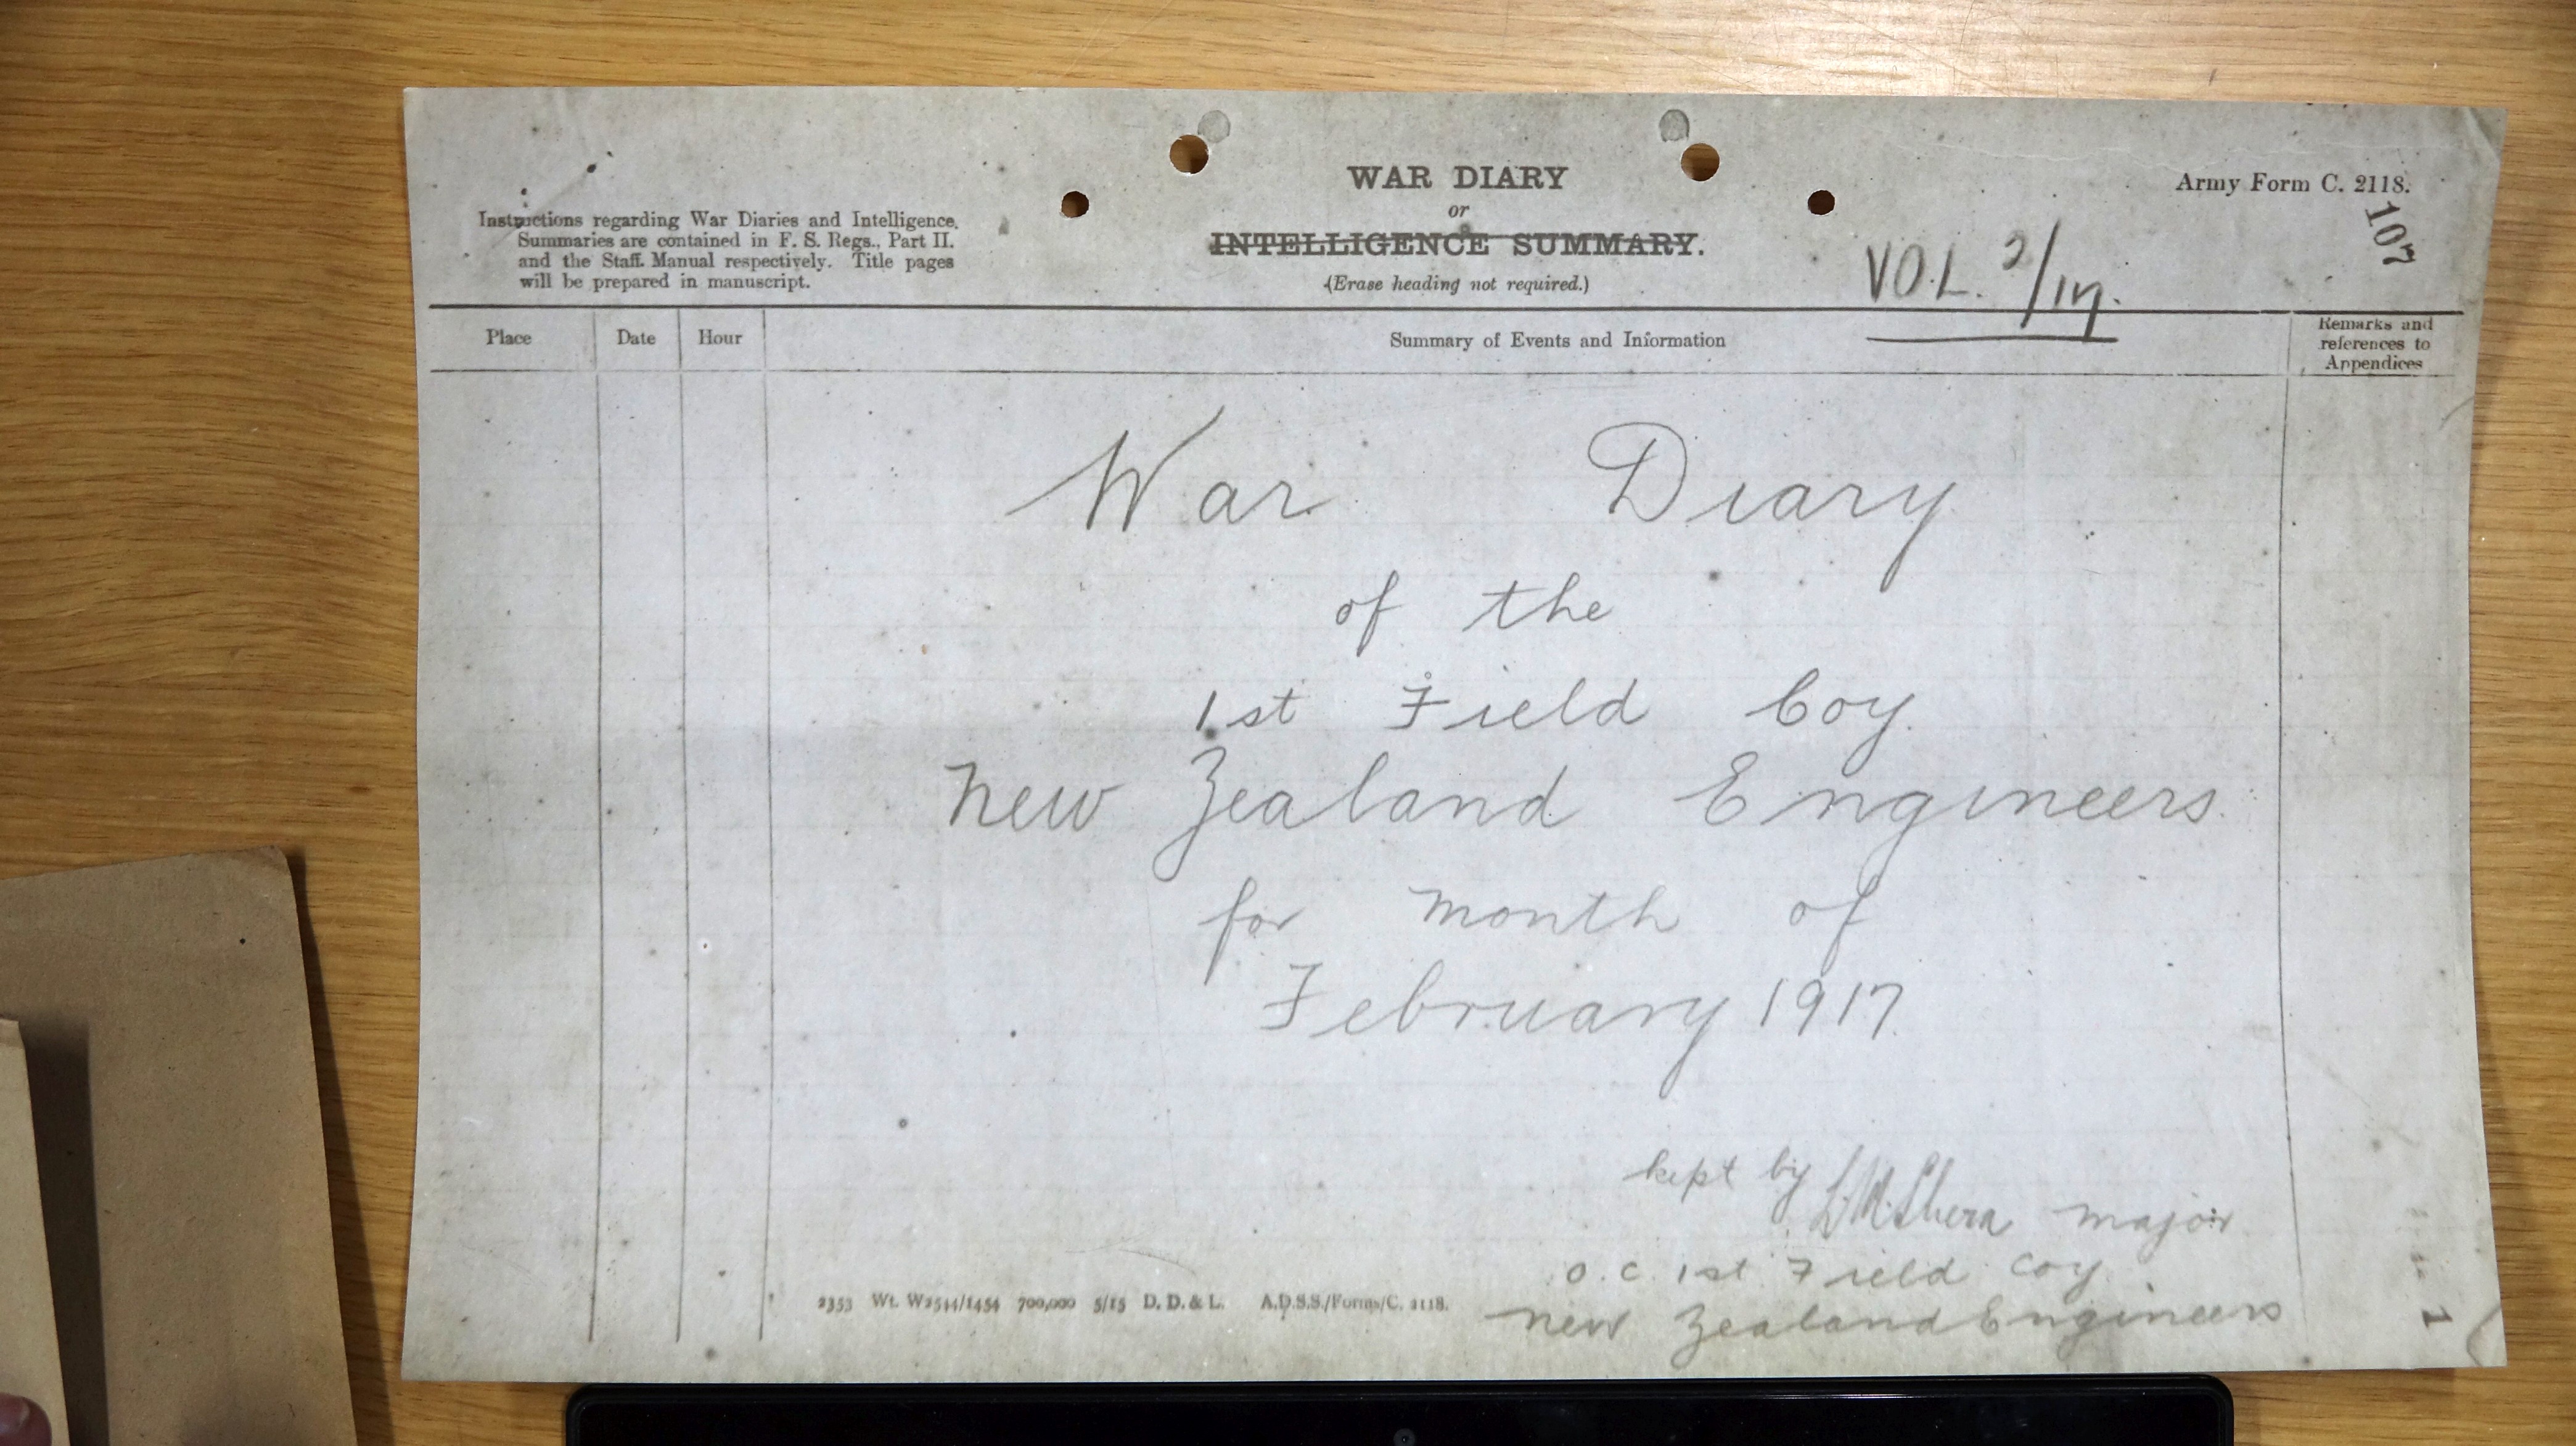 WAR DIARY
or
INTELLIGENCE SUMMARY.
(Erase heading not required.)
Army Form C. 2118.
107
Instructions regarding War Diaries and Intelligence
Summaries are contained in F. S. Regs., Part II.
and the Staff Manual respectively. Title pages
will be prepared in manuscript.
VOL. 2/17.
Place
Date
Hour
Summary of Events and Information
Remarks and
references to
Appendices
War Diary
of the
1st Field Coy.
New Zealand Engineers.
for month of
February 1917.
kept by
Shera major
O.C. 1st Field Coy.
New Zealand Engineers
2353 Wt. W2544/1454 700,000 5/15 D. D. & L. A.D.S.S./Forms/C. 2118.
1